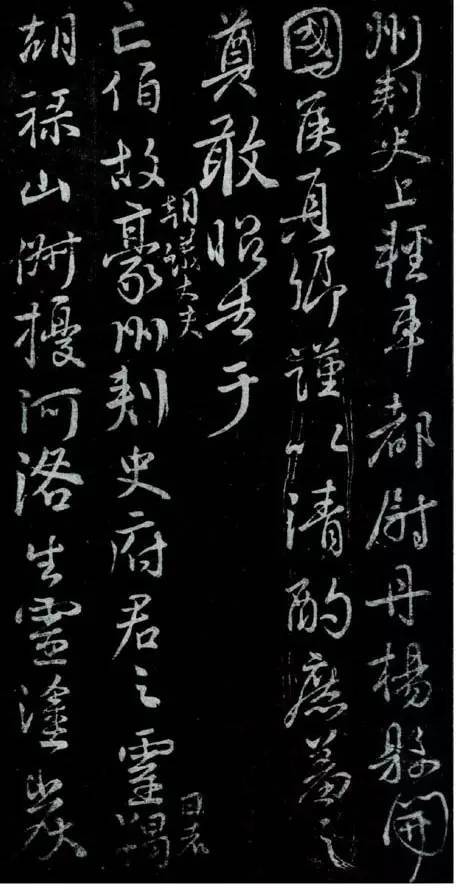 州刺史上輕車都尉丹楊縣開
國侯真卿謹以清酌庶羞之
奠敢昭告于
亡伯故朝議大夫豪州刺史府君之靈日者羯
胡祿山俶擾河洛生靈塗炭